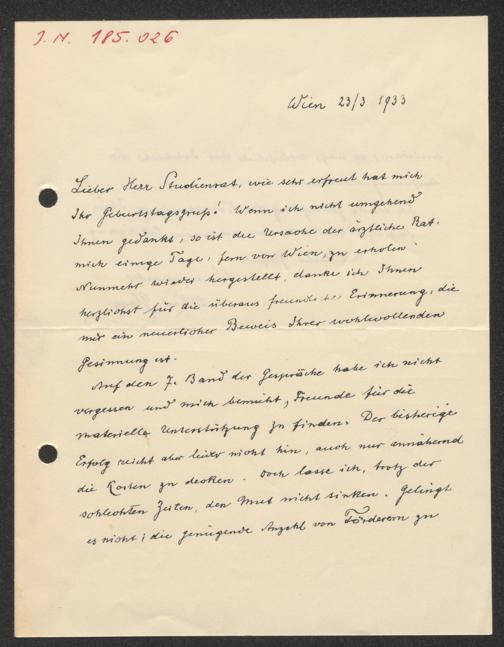 J. N. 185.026
Wien 23/3 1933
Lieber Herr Studienrat, wie sehr erfreut hat mich
Ihr Geburtstagsgruß! Wenn ich nicht umgehend
Ihnen gedankt, so ist die Ursache der ärztliche Rat,
mich einige Tage, fern von Wien, zu erholen.
Nunmehr wieder hergestellt, danke ich Ihnen
herzlichst für die überaus freundliche Erinnerung, die
mir ein neuerlicher Beweis Ihrer wohlwollenden
Gesinnung ist.
Auf den 7. Band der Gespräche habe ich nicht
vergessen und mich bemüht, Freunde für die
materielle Unterstützung zu finden. Der bisherige
Erfolg reicht aber leider nicht hin, auch nur annähernd
die Kosten zu decken. Doch lasse ich, trotz der
schlechten Zeiten, den Mut nicht sinken. Gelingt
es nicht, die genügende Anzahl von Förderern zu